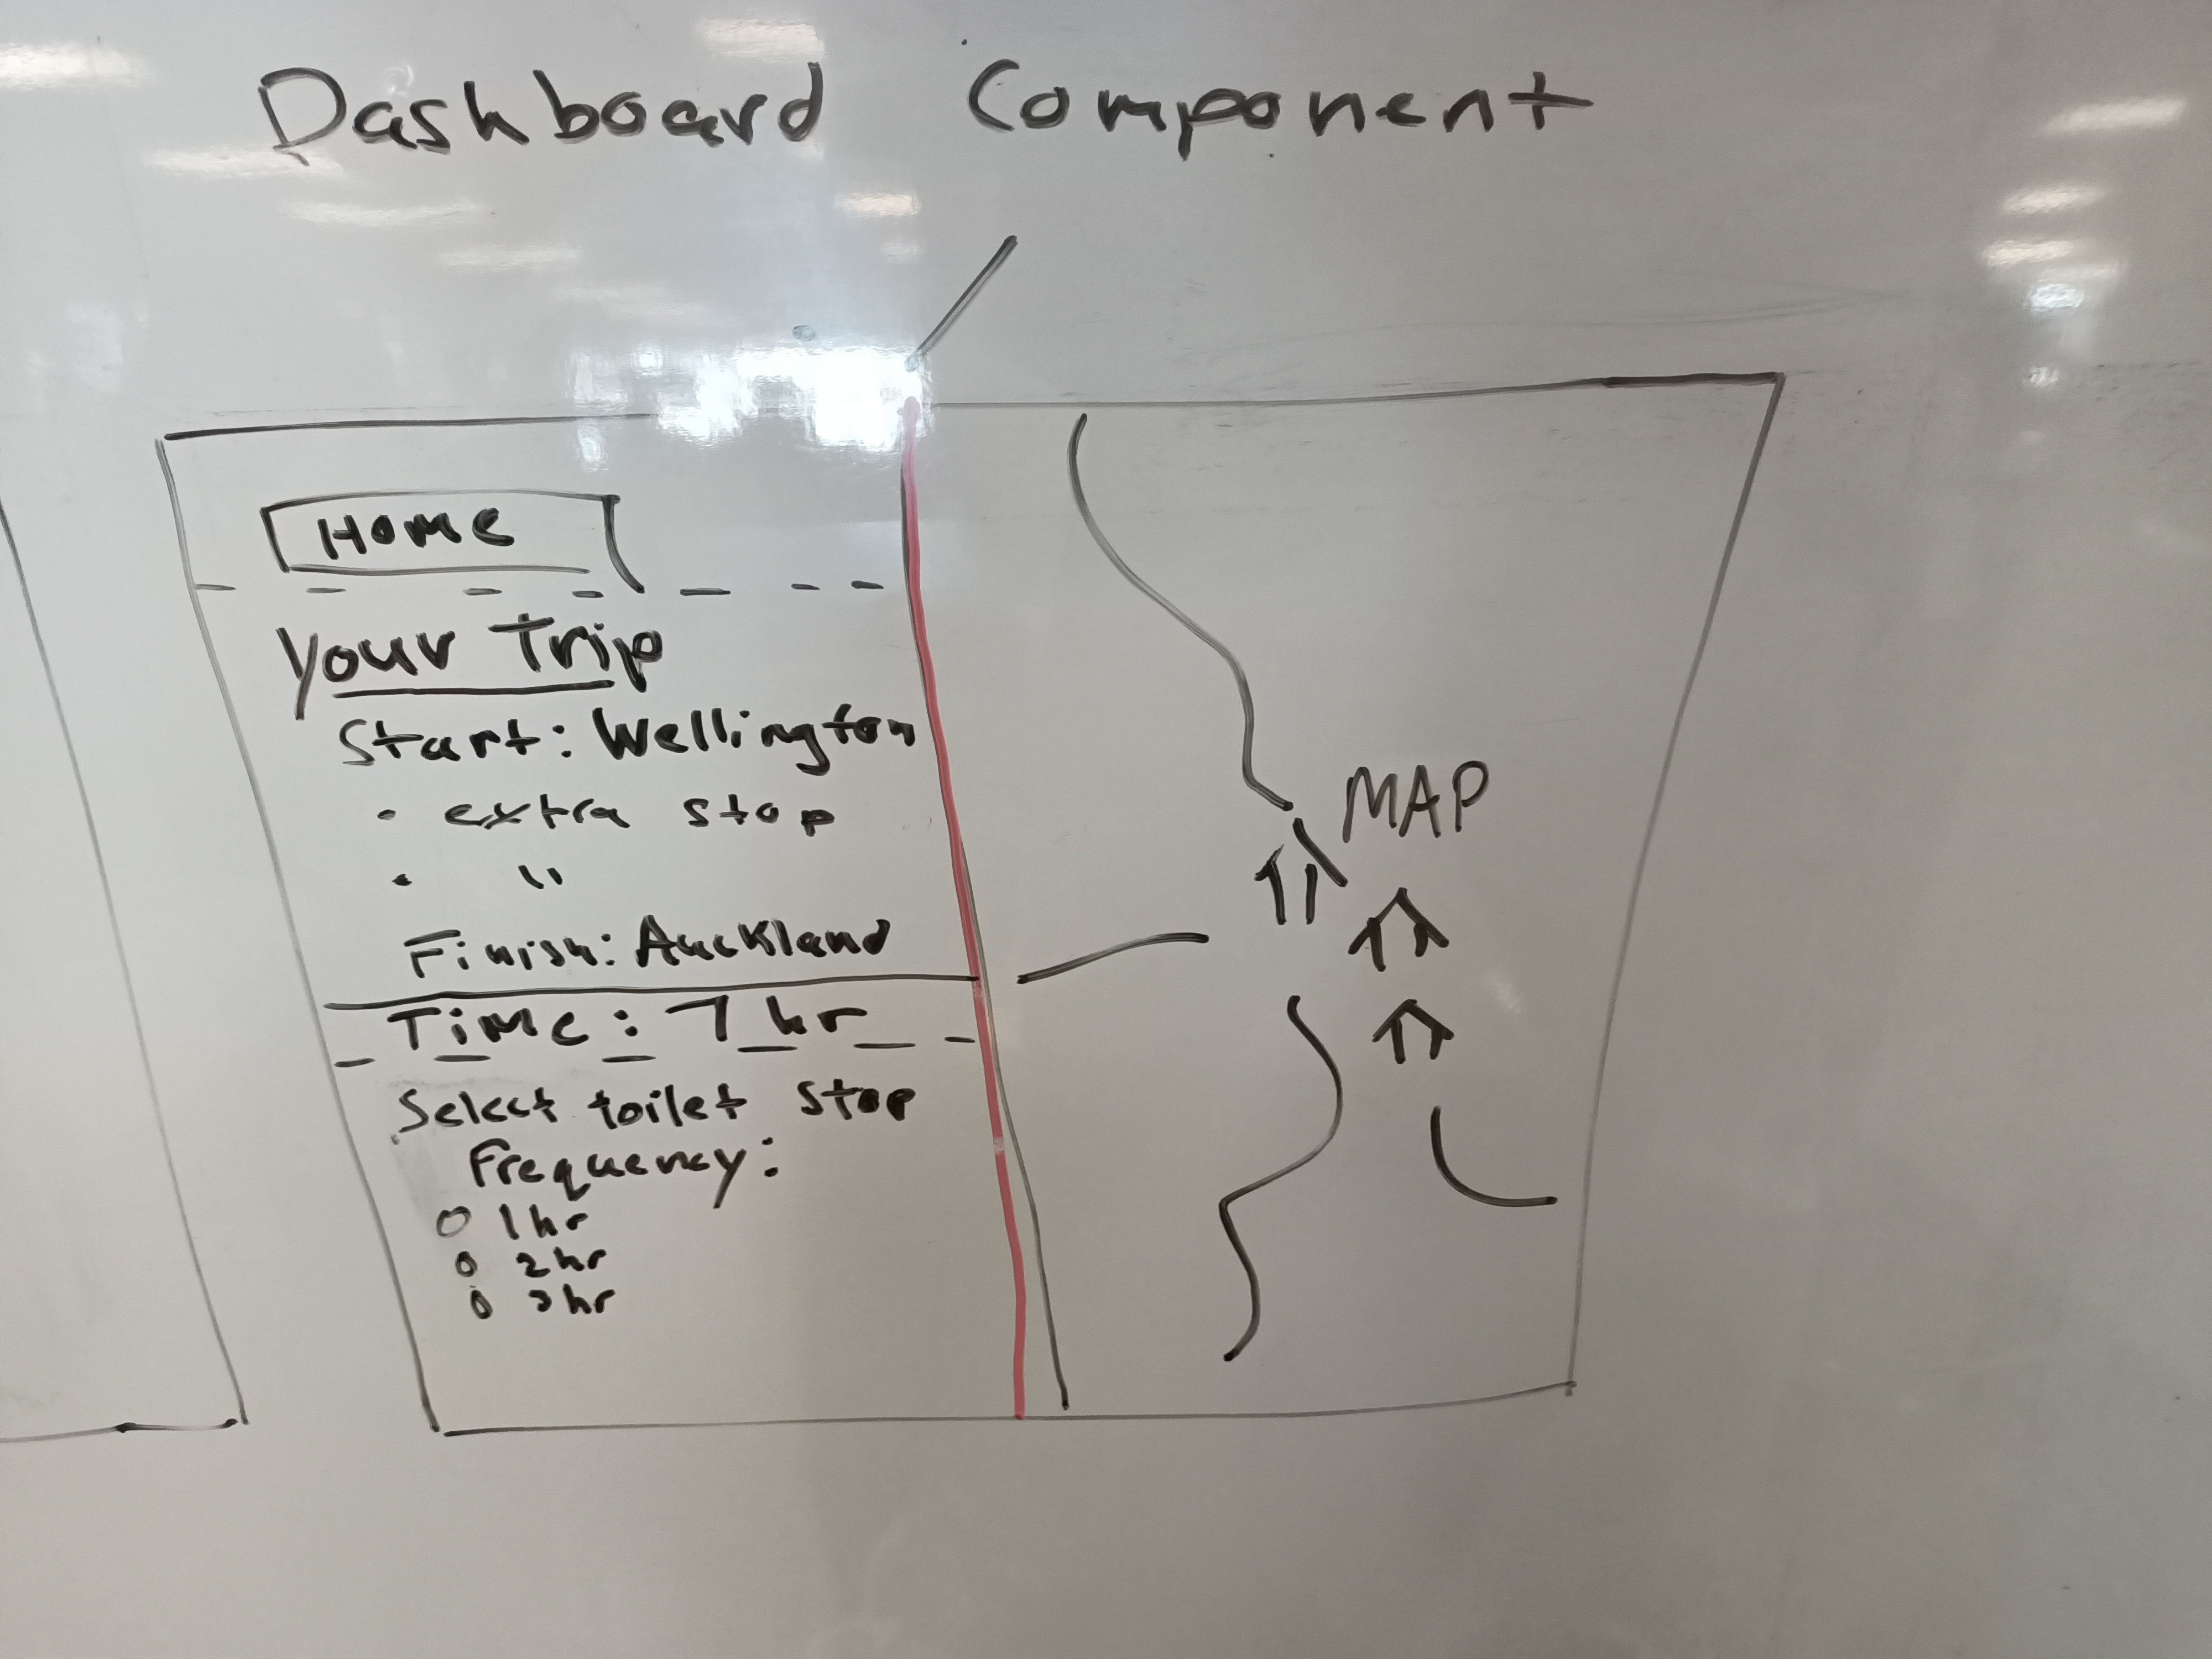 Dashboard Component
Home
Your Trip
Start: Wellington
• extra stop
• "
Finish: Auckland
Time: 7 hr
Select toilet stop
Frequency:
○ 1hr
○ 2hr
○ 3hr
MAP